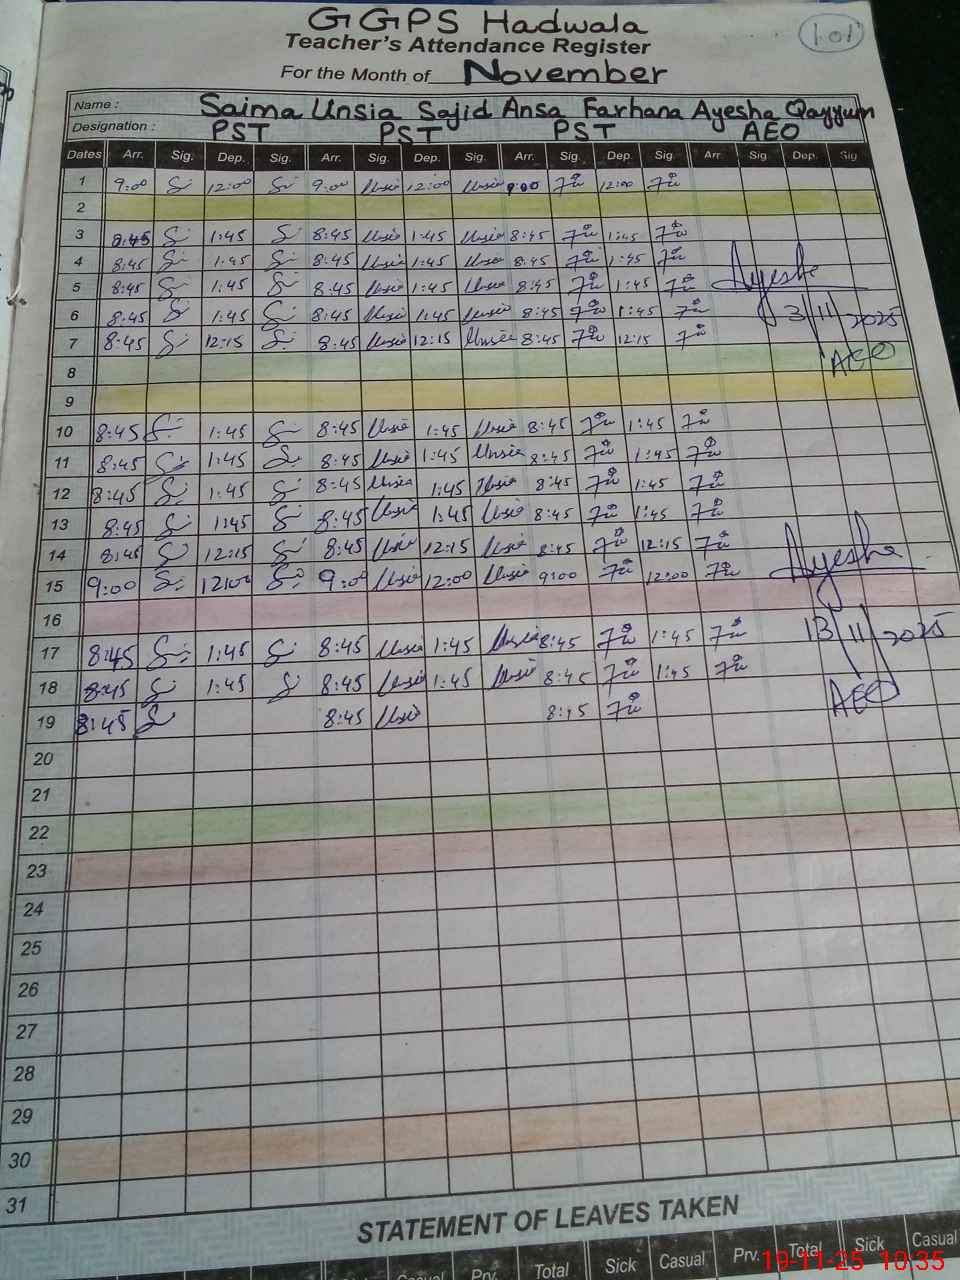 GGPS Hadwala
101
Teacher's Attendance Register
For the Month of November
Name : Saima Unsia Sajid Ansa Farhana Ayesha Qayyum
Designation : PST PST PST AEO
Dates Arr. Sig. Dep. Sig. Arr. Sig. Dep. Sig. Arr. Sig. Dep. Sig. Arr Sig. Dep. Sig
1 9:00 S 12:00 S 9:00 Unsia 12:00 Unsia 9:00 12:00
2
3 8:45 S 1:45 S 8:45 Unsia 1:45 Unsia 8:45 1:45
4 8:45 S 1:45 S 8:45 Unsia 1:45 Unsia 8:45 1:45
5 8:45 S 1:45 S 8:45 Unsia 1:45 Unsia 8:45 1:45 Ayesha
6 8:45 S 1:45 S 8:45 Unsia 1:45 Unsia 8:45 1:45 3/11/2025
7 8:45 S 12:15 S 8:45 Unsia 12:15 Unsia 8:45 12:15
8 AEO
9
10 8:45 S 1:45 S 8:45 Unsia 1:45 Unsia 8:45 1:45
11 8:45 S 1:45 S 8:45 Unsia 1:45 Unsia 8:45 1:45
12 8:45 S 1:45 S 8:45 Unsia 1:45 Unsia 8:45 1:45
13 8:45 S 1:45 S 8:45 Unsia 1:45 Unsia 8:45 1:45
14 8:45 S 12:15 S 8:45 Unsia 12:15 Unsia 8:45 12:15
15 9:00 S 12:00 S 9:00 Unsia 12:00 Unsia 9:00 12:00 Ayesha
16
17 8:45 S 1:45 S 8:45 Unsia 1:45 Unsia 8:45 1:45 13/11/2025
18 8:45 S 1:45 S 8:45 Unsia 1:45 Unsia 8:45 1:45 AEO
19 8:45 S 8:45 Unsia 8:45
20
21
22
23
24
25
26
27
28
29
30
31
STATEMENT OF LEAVES TAKEN
Casual Prv. Total Sick Casual Prv. Total Sick Casual
19-11-25 10:35